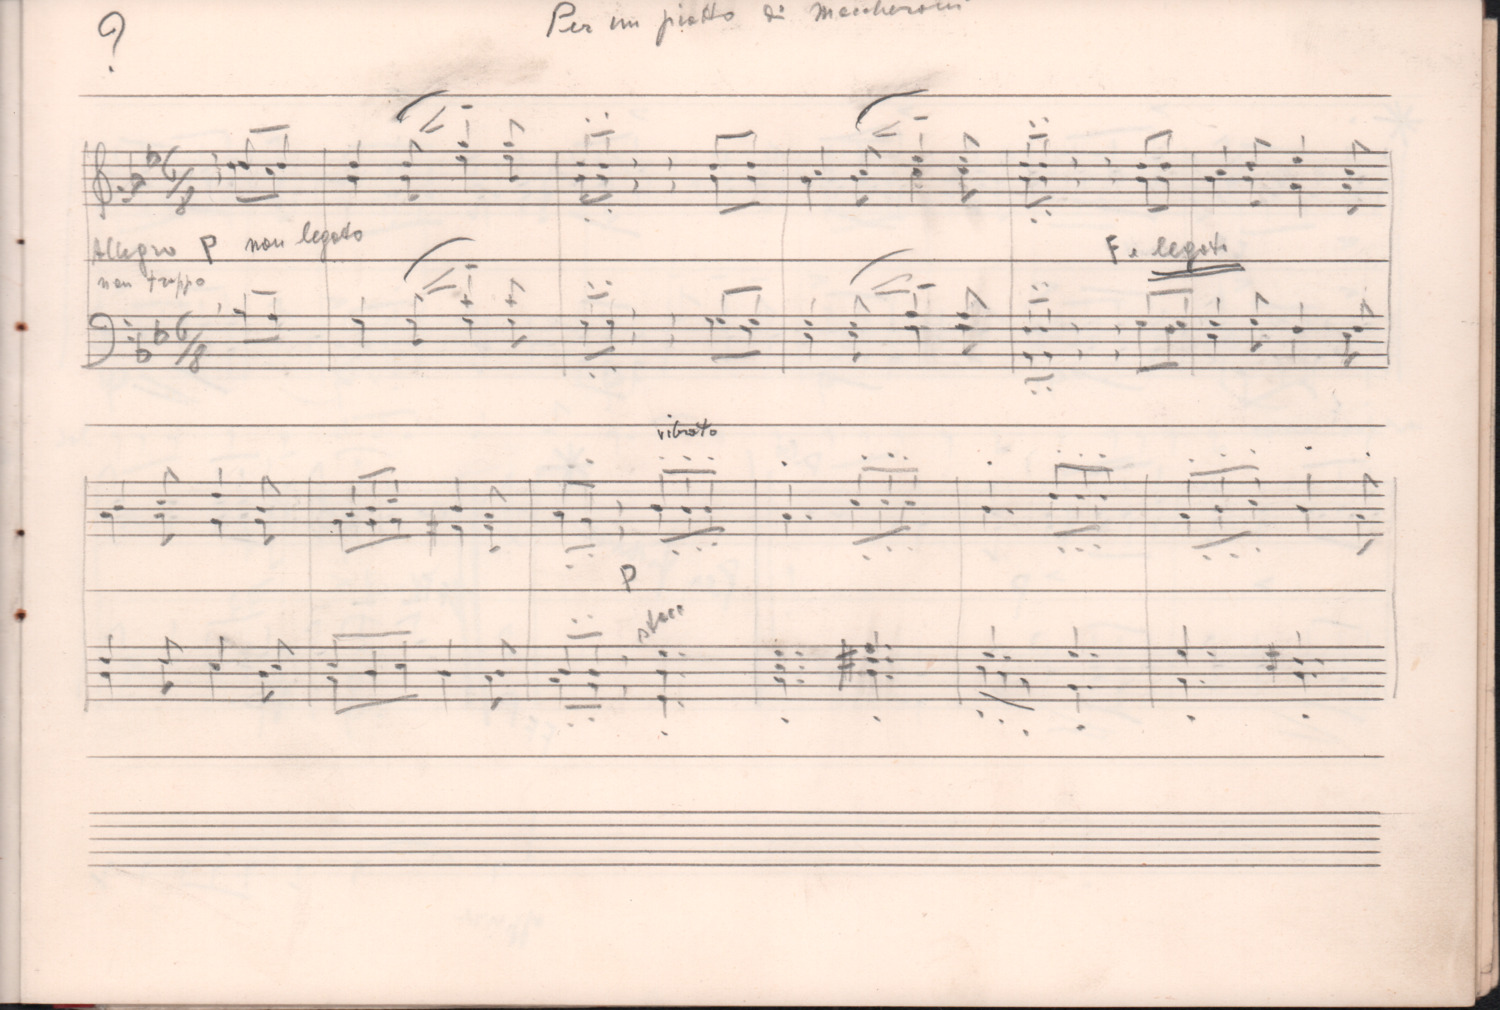 ?
Per un piatto di Maccheroni
6/8
Allegro P non legato
non troppo
F e legato
6/8
vibrato
P
stacc